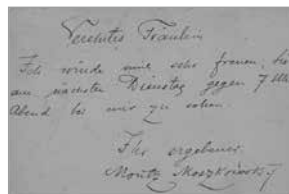 Verehrtes Fräulein
Ich würde mich sehr freuen, Sie
am nächsten Dienstag gegen 7 Uhr
Abend bei mir zu sehen.
Ihr ergebener
Moritz Moszkowski